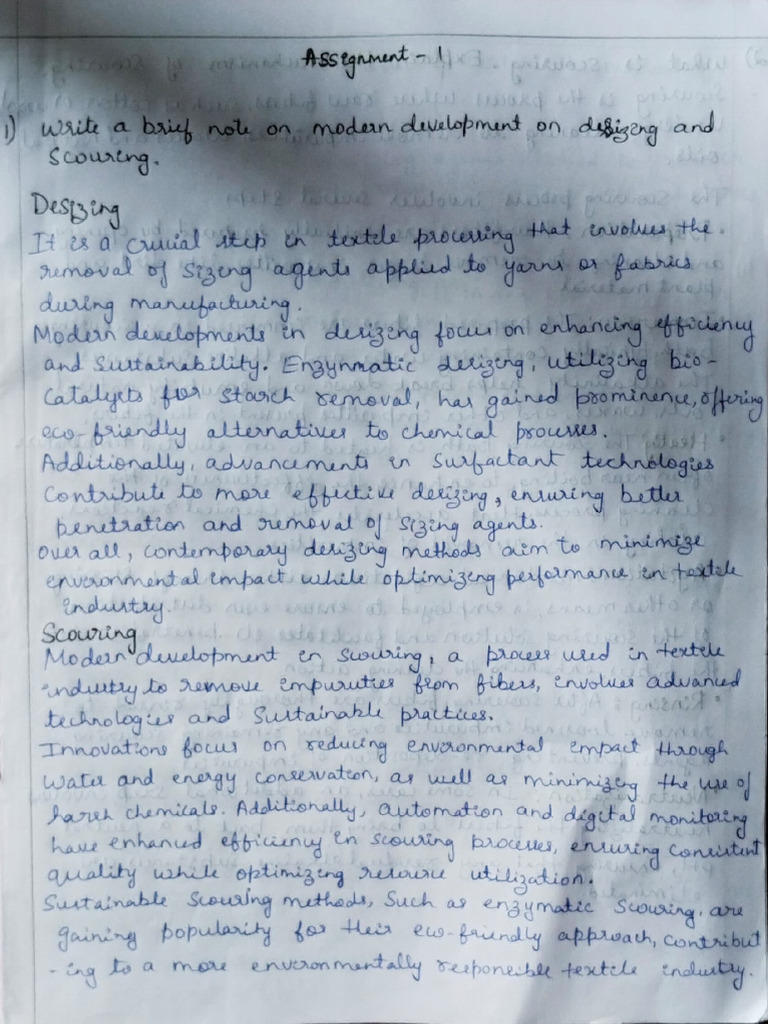 Assignment - 1
1) Write a brief note on modern development on desizing and
scouring.
Desizing
It is a crucial step in textile processing that involves, the
removal of sizing agents applied to yarns or fabrics
during manufacturing.
Modern developments in desizing focus on enhancing efficiency
and sustainability. Enzynmatic desizing, utilizing bio-
catalysts for starch removal, has gained prominence, offering
eco-friendly alternatives to chemical processes.
Additionally, advancements in surfactant technologies
contribute to more effective desizing, ensuring better
penetration and removal of sizing agents.
Over all, contemporary desizing methods aim to minimize
environmental impact while optimizing performance in textile
industry.
Scouring
Modern development in scouring, a process used in textile
industry to remove impurities from fibers, involves advanced
technologies and sustainable practices.
Innovations focus on reducing environmental impact through
water and energy conservation, as well as minimizing the use of
harsh chemicals. Additionally, automation and digital monitoring
have enhanced efficiency in scouring processes, ensuring consistent
quality while optimizing resource utilization.
Sustainable scouring methods, such as enzymatic scouring, are
gaining popularity for their eco-friendly approach, contribut
-ing to a more environmentally responsible textile industry.